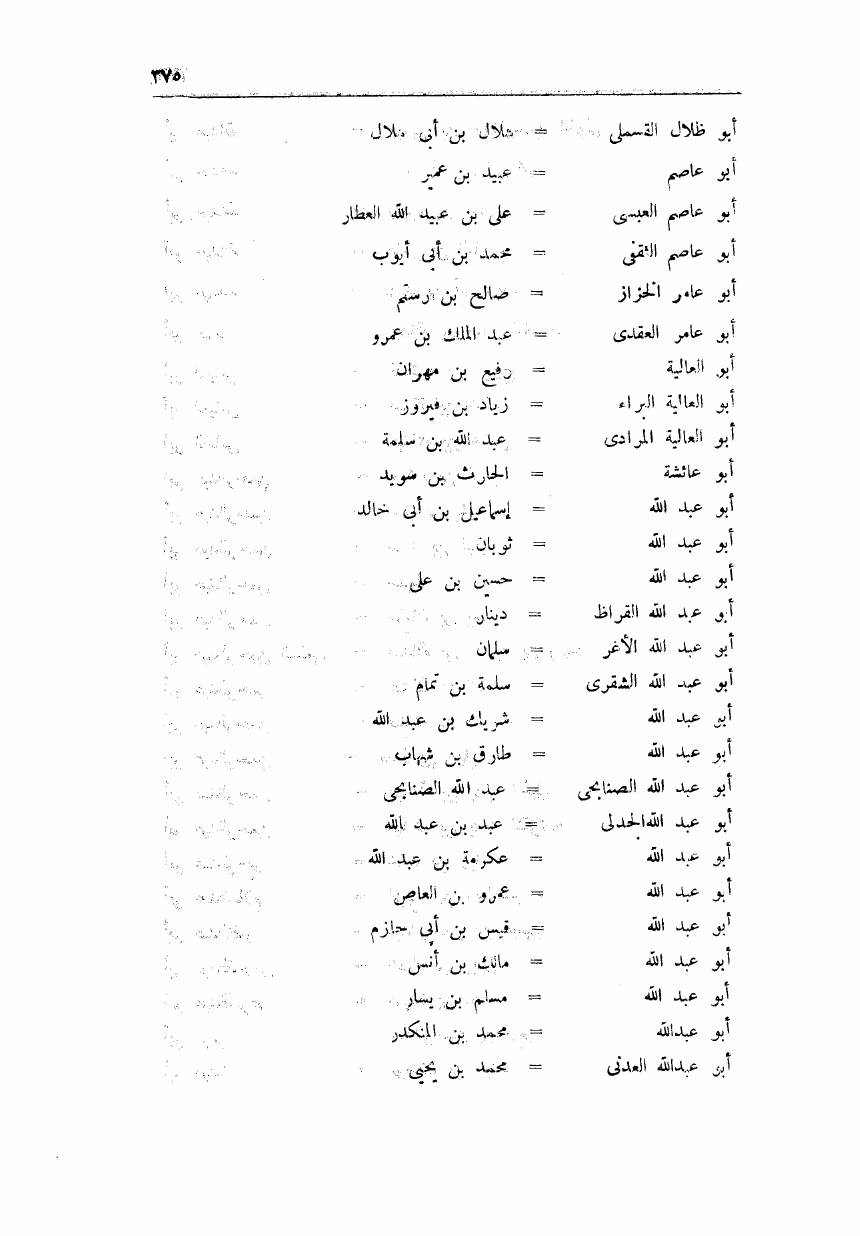 ٣٧٥
أبو ظلال القسملى = هلال بن أبى هلال
أبو عاصم = عبيد بن عمير
أبو عاصم العبسى = على بن عبيد الله العطار
أبو عاصم الثقفى = محمد بن أبى أيوب
أبو عامر الخزاز = صالح بن رستم
أبو عامر العقدى = عبد الملك بن عمرو
أبو العالية = رفيع بن مهران
أبو العالية البراء = زياد بن فيروز
أبو العالية المرادى = عبد الله بن سلمة
أبو عائشة = الحارث بن سويد
أبو عبد الله = إسماعيل بن أبى خالد
أبو عبد الله = ثوبان
أبو عبد الله = حسين بن على
أبو عبد الله القراظ = دينار
أبو عبد الله الأغر = سلمان
أبو عبد الله الشقرى = سلمة بن تمام
أبو عبد الله = شريك بن عبد الله
أبو عبد الله = طارق بن شهاب
أبو عبد الله الصنابحى = عبد الله الصنابحى
أبو عبد اللهالجدلى = عبد بن عبد الله
أبو عبد الله = عكرمة بن عبد الله
أبو عبد الله = عمرو بن العاص
أبو عبد الله = قيس بن أبى حازم
أبو عبد الله = مالك بن أنس
أبو عبد الله = مسلم بن يسار
أبو عبدالله = محمد بن المنكدر
أبو عبدالله العدنى = محمد بن يحيى